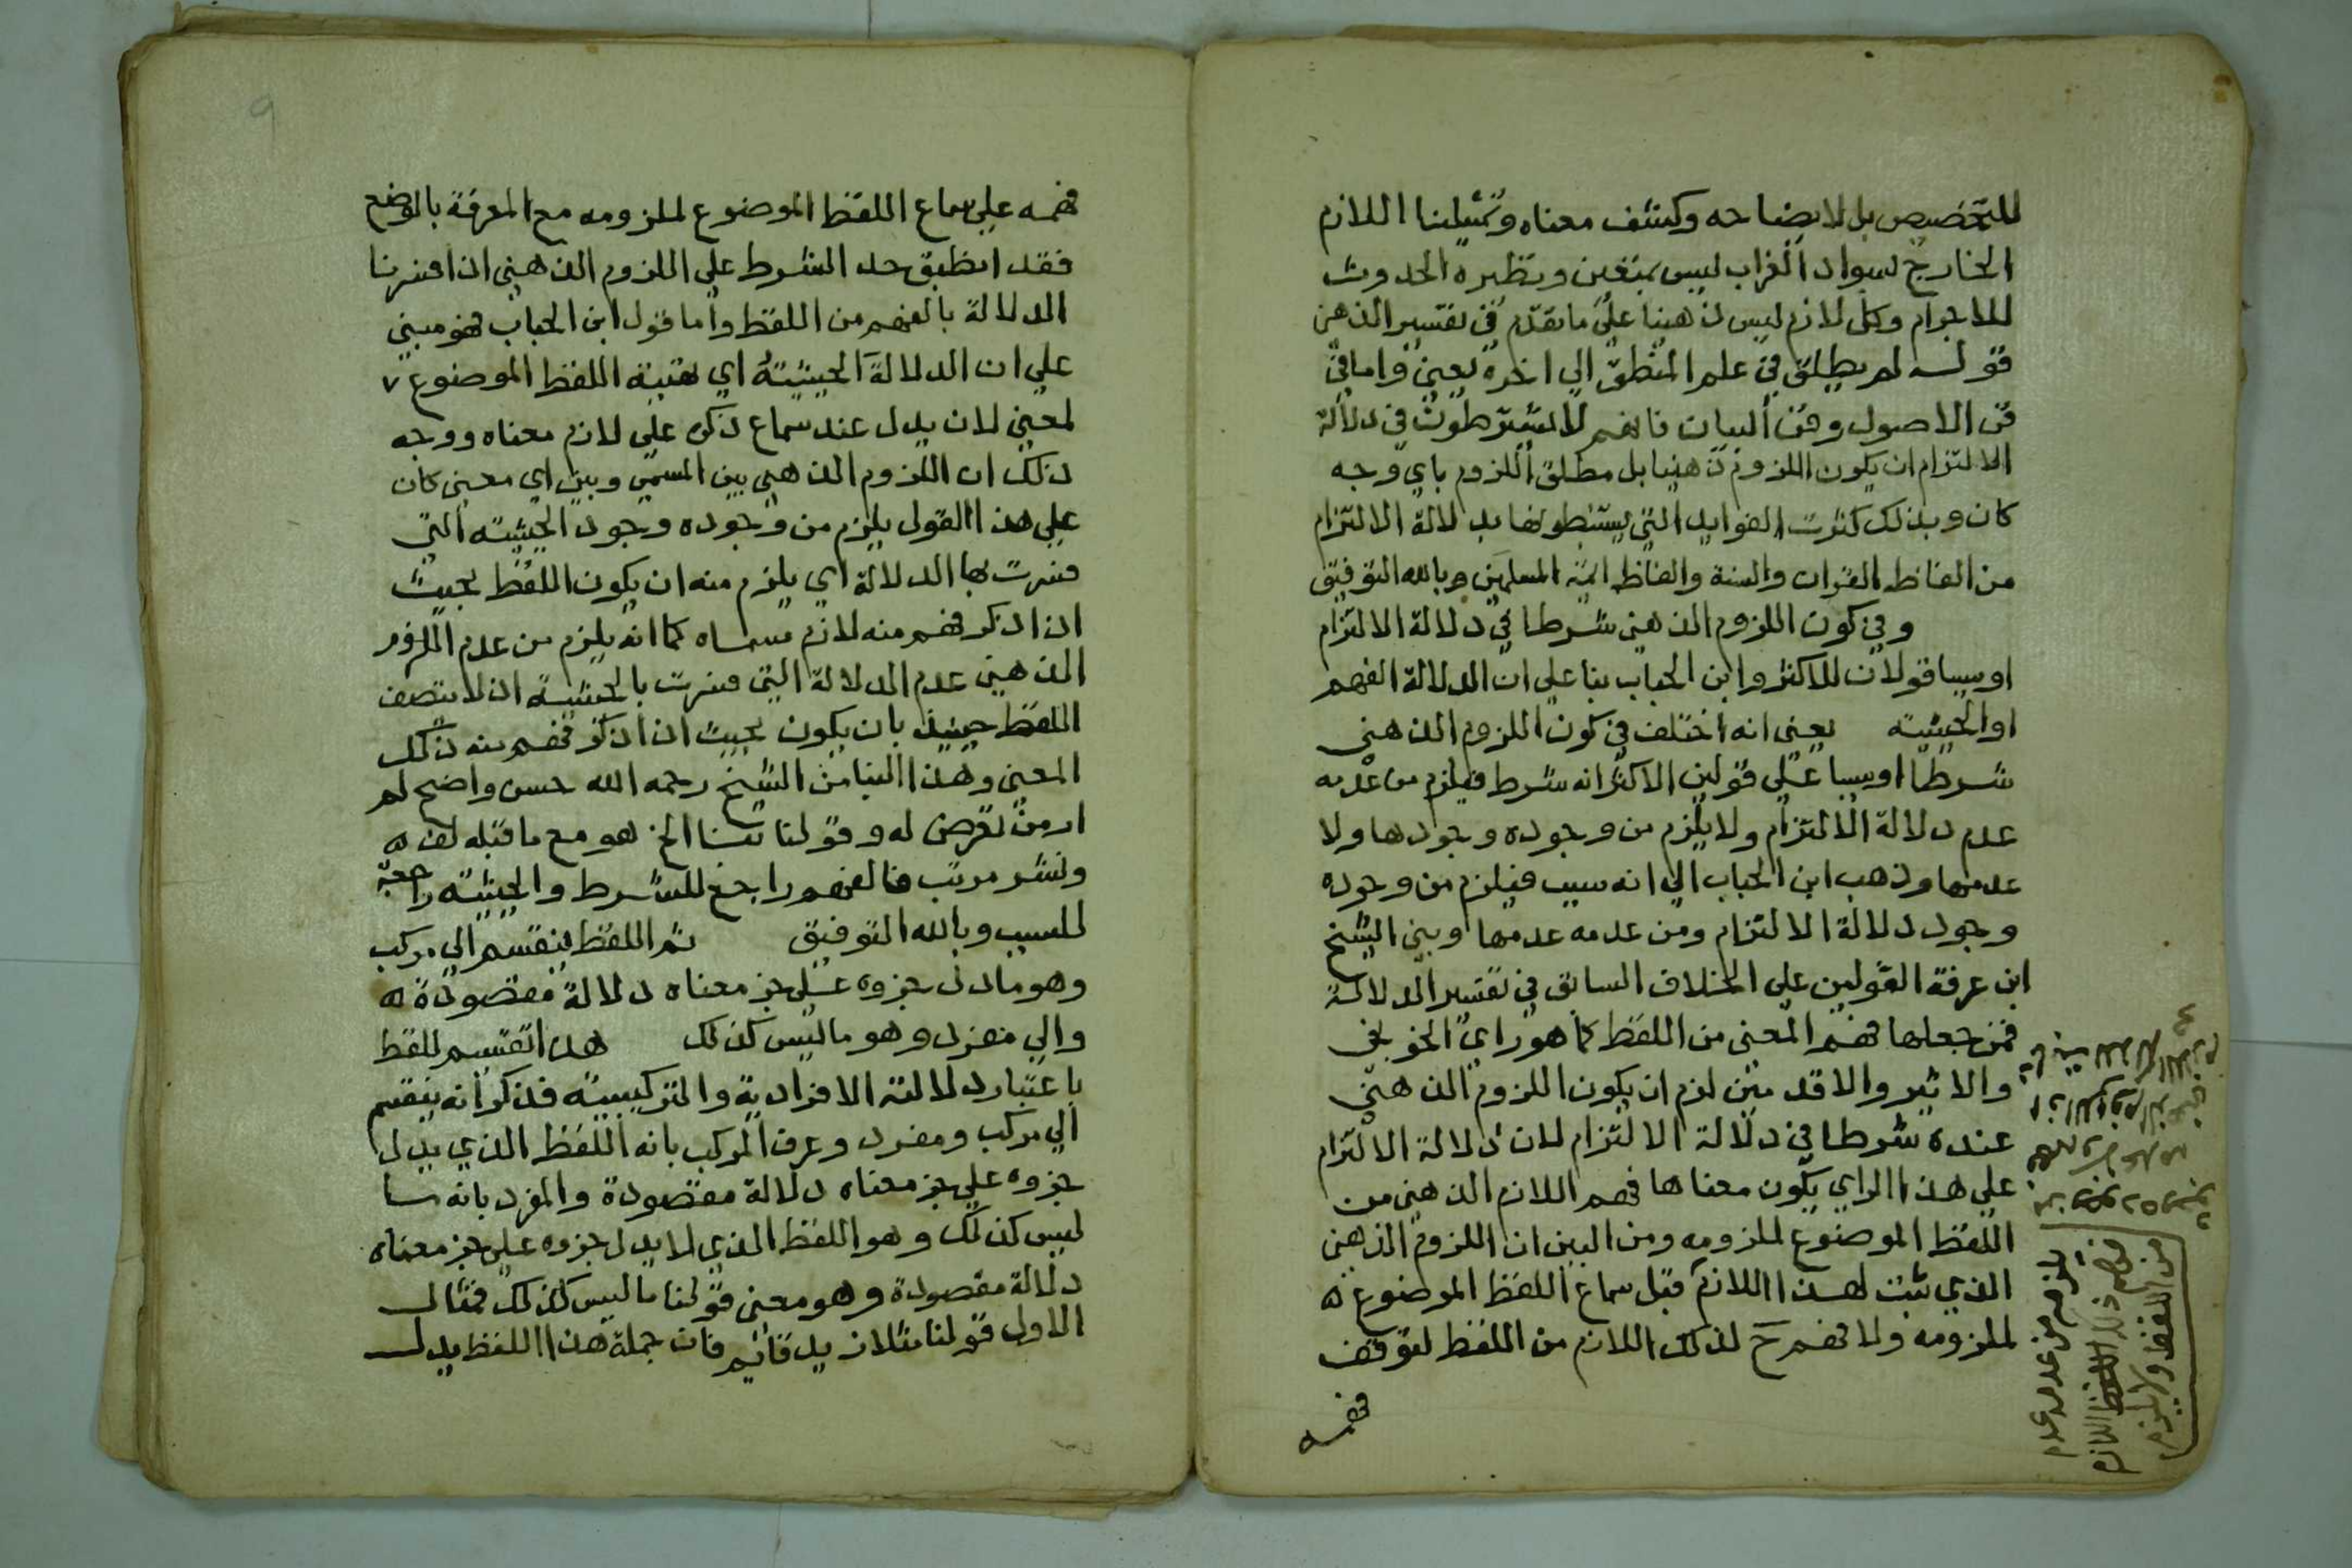 للتخصيص بل لايضاحه وكشف معناه وتمثيلنا اللازم
الخارج بسواد الغراب ليس بمتعين ونظيره الحدوث
للاجرام وكل لازم ليس ذهنيا علي ما تقدم في تفسير الذهن
قوله لم يطلق في علم المنطق الي اخره يعني واما في
فن الاصول وفن البيان فانهم لا يشترطون في دلالة
الالتزام ان يكون اللزوم ذهنيا بل مطلق اللزوم باي وجه
كان وبذلك كثرت الفوايد التي يستنبطونها بدلالة الالتزام
من الفاظ القران والسنة والفاظ ايمة المسلمين وبالله التوفيق
وفي كون اللزوم الذهني شرطا في دلالة الالتزام
او سببا قولان للاكثر وابن الحباب بنا علي ان الدلالة الفهم
او الحيثية يعني انه اختلف في كون اللزوم الذهني
شرطا او سببا علي قولين الاكثر انه شرط فيلزم من عدمه
عدم دلالة الالتزام ولا يلزم من وجوده وجودها ولا
عدمها وذهب ابن الحباب الي انه سبب فيلزم من وجوده
وجود دلالة الالتزام ومن عدمه عدمها وبني الشيخ
ابن عرفة القولين علي الخلاف السابق في تفسير الدلالة
فمن جعلها فهم المعني من اللفظ كما هو راي الخونجي
والاثير والاقدمين لزم ان يكون اللزوم الذهني
عنده شرطا في دلالة الالتزام لان دلالة الالتزام
علي هذا الراي يكون معناها فهم اللازم الذهني من
اللفظ الموضوع لملزومه ومن البين ان اللزوم الذهني
الذي ثبت لهذا اللازم قبل سماع اللفظ الموضوع ه
لملزومه ولا فهم ح لذلك اللازم من اللفظ لتوقف
فهمه
يلزم من عدمه عدم
فهم ذلك اللازم
من اللفظ ولا يلزم
9
فهمه علي سماع اللفظ الموضوع لملزومه مع المعرفة بالوضع
فقد انطبق حد الشرط علي اللزوم الذهني اذا فسرنا
الدلالة بالفهم من اللفظ واما قول ابن الحباب فهو مبني
علي ان الدلالة الحيثية اي اللفظ الموضوع
لمعني لان يدل عند سماع ذكره علي لازم معناه ووجه
ذلك ان اللزوم الذهني بين المسمي وبين اي معني كان
علي هذا القول يلزم من وجوده وجود الحيثية التي
فسرت بها الدلالة اي يلزم منه ان يكون اللفظ بحيث
اذا ذكر فهم منه لازم مسماه كما انه يلزم من عدم اللزوم
الذهني عدم الدلالة التي فسرت بالحيثية اذ لا يتصف
اللفظ حينيذ بان يكون بحيث اذا ذكر فهم منه ذلك
المعني وهذا البنا من الشيخ رحمه الله حسن واضح لم
ار من تعرض له وقولنا بنا الخ هو مع ما قبله لف ه
ونشر مرتب فالفهم راجع للشرط والحيثية راجعة
للسبب وبالله التوفيق ثم اللفظ ينقسم الي مركب
وهو ما دل جزوه علي جز معناه دلالة مقصودة ه
والي مفرد وهو ما ليس كذلك هذا تقسيم للفظ
باعتبار دلالته الافرادية والتركيبية فذكر انه ينقسم
الي مركب ومفرد وعرف المركب بانه اللفظ الذي يدل
جزوه علي جز معناه دلالة مقصودة والمفرد بانه ما
ليس كذلك وهو اللفظ الذي لا يدل جزوه علي جز معناه
دلالة مقصودة وهو معني قولنا ما ليس كذلك فمثال
الاول قولنا مثلا زيد قائم فان جملة هذا اللفظ يدل